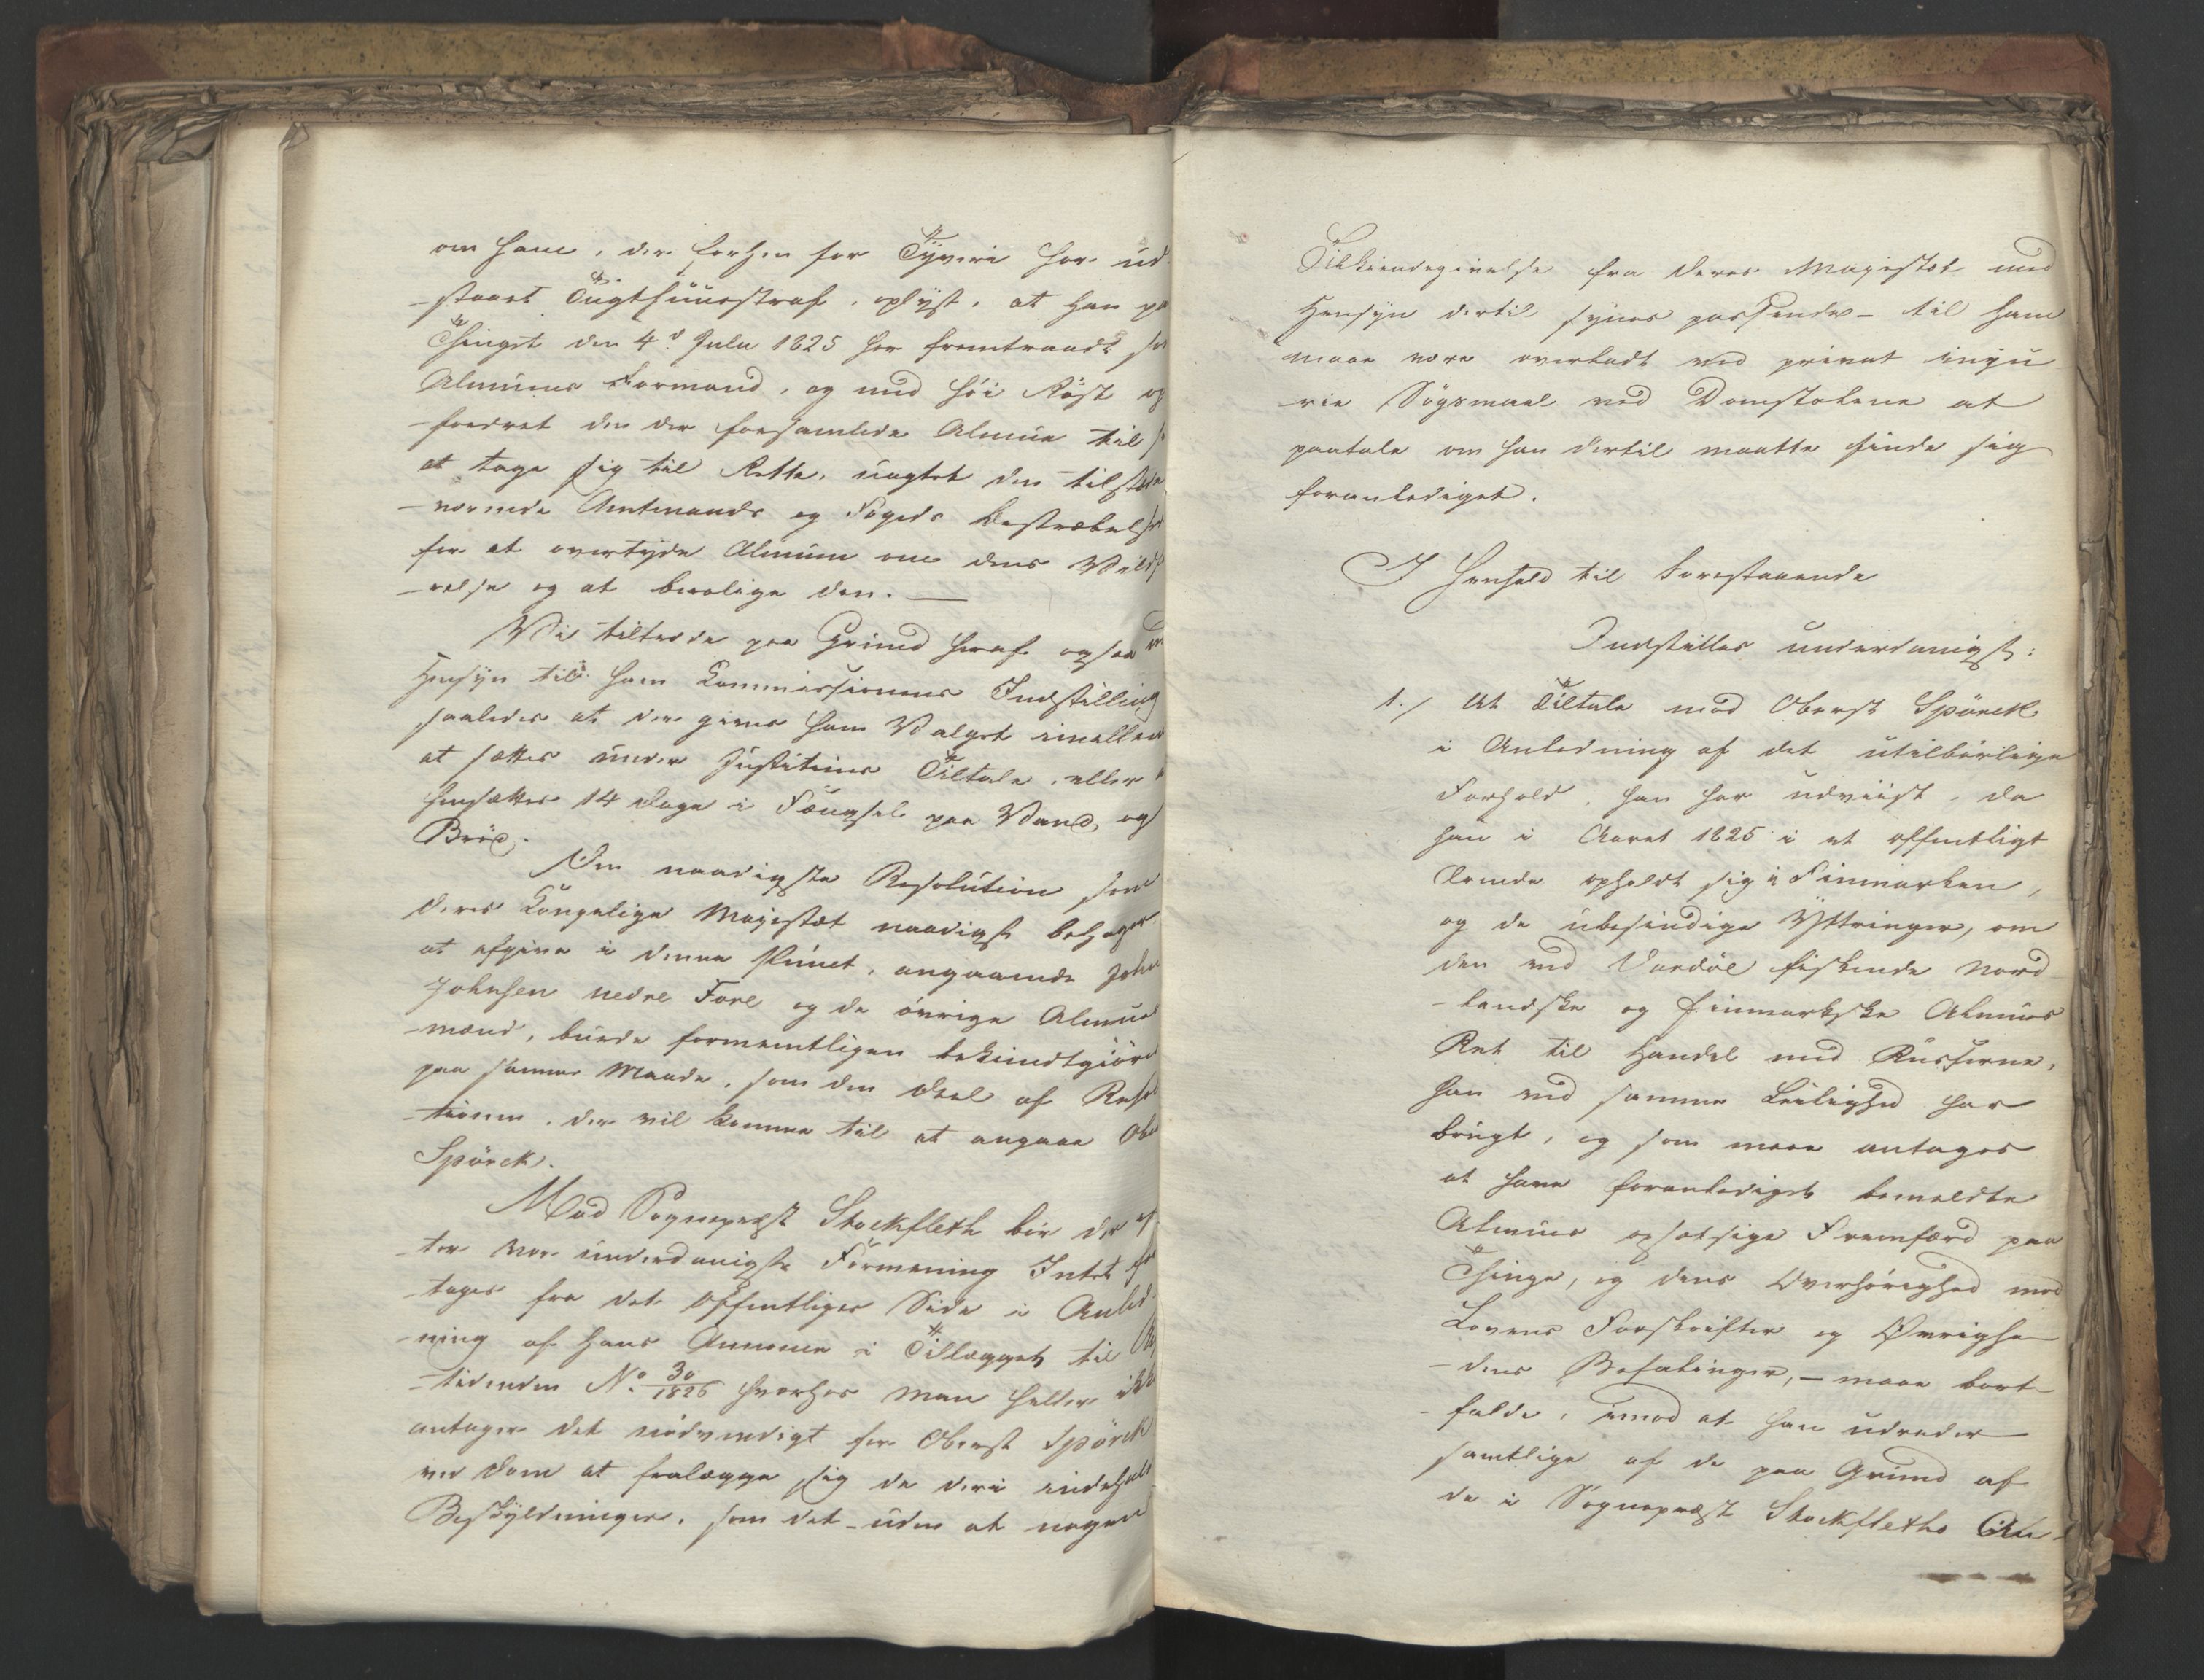 om ham, der forhen for Tyverie har ud-
-staaet Tugthuusstraf, oplyst, at han pa
Thinget den 4de Julii 1825 har fremtraadt so
Almuens Formand, og med høi Røst op
-fordret den der forsamlede Almue til s
at tage sig til Rette, uagtet den tilstede
-værende Amtmands og Fogeds Bestræbelser
for at overtyde Almuen om dens Vildf
-relse og at berolige den. —
Vi tiltræde paa Grund heraf ogsaa m
Hensyn til ham Commissionens Indstilling
saaledes at der gives ham Valget imellem
at sættes under Justitiens Tiltale, eller
hensættes 14 Dage i Fængsel paa Vand og
Brød.
Den naadigste Resolution som
Deres Kongelige Majestæt naadigst behager
at afgive i denne Punct, angaaende John
Johnsen nedre Fore og de øvrige Almues
-mænd, burde formeentligen bekiendtgiøre
paa samme Maade, som den Deel af Resol
-tionen, der vil komme til at angaae Obe
Spörck.
Mod Sognepræst Stockfleth bør der ef
-ter vor underdanigste Formening Intet fore
-tages fra det Offentliges Side i Anled-
-ning af hans Annonce i Tillægget til
-tidenden No. 30/1826 hvorhos man heller ikke
antager det nødvendigt for Oberst Spörck
ved Dom at fralægge sig de deri indehold
Beskyldninger, som det - uden at nogen
Tilkiendegivelse fra Deres Majestæt med
Hensyn dertil synes passende - til ham
maae være overladt ved privat inju-
-rie Søgsmaal ved Domstolene at
paatale om han dertil maatte finde sig
foranlediget.
I Henhold til Forestaaende
Indstilles underdanigst:
1./ At Tiltale mod Oberst Spörck
i Anledning af det utilbørlige
Forhold, han har udviist, da
han i Aaret 1825 i et offentligt
Ærende opholdt sig i Finmarken,
og de ubesindige Yttringer, om
den ved Vardöe fiskende Nord-
-landske og finmarkske Almues
Ret til Handel med Russerne,
han ved samme Leilighed har
brugt, og som maae antages
at have foranlediget bemeldte
Almues opsætsige Fremfærd paa
Thinge, og dens Overhørighed mod
Lovens Forskrifter og Øvrighe-
-dens Befalinger, — maae bort-
-falde, imod at han udreder
samtlige af de paa Grund af
de i Sognepræst Stockfleths An-